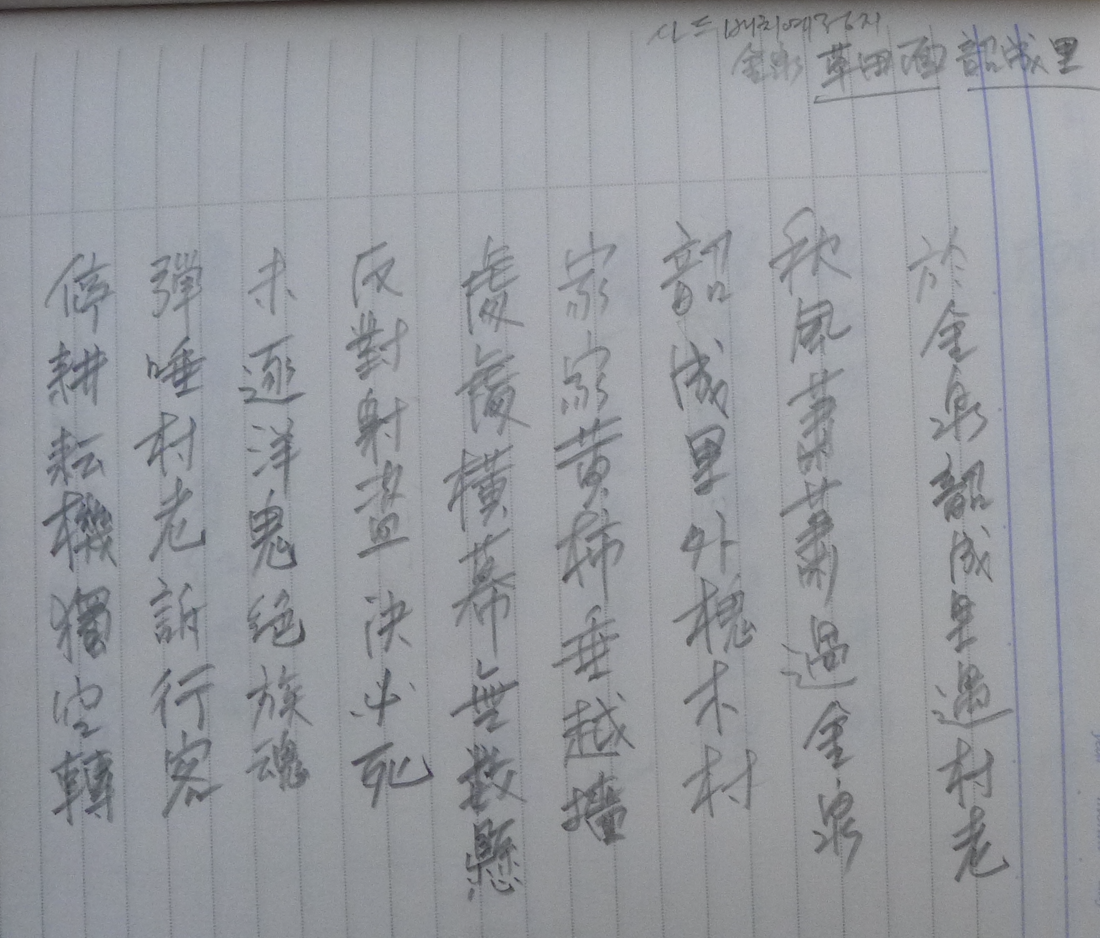 사드배치예정지
金泉 草田面 韶成里
於金泉韶成里遇村老
秋風蕭蕭過金泉
韶成里外槐木村
家家黃柿垂越墻
處處橫幕無數懸
反對射盜決必死
未逐洋鬼絶族魂
彈唾村老訴行客
停耕耘機獨空轉